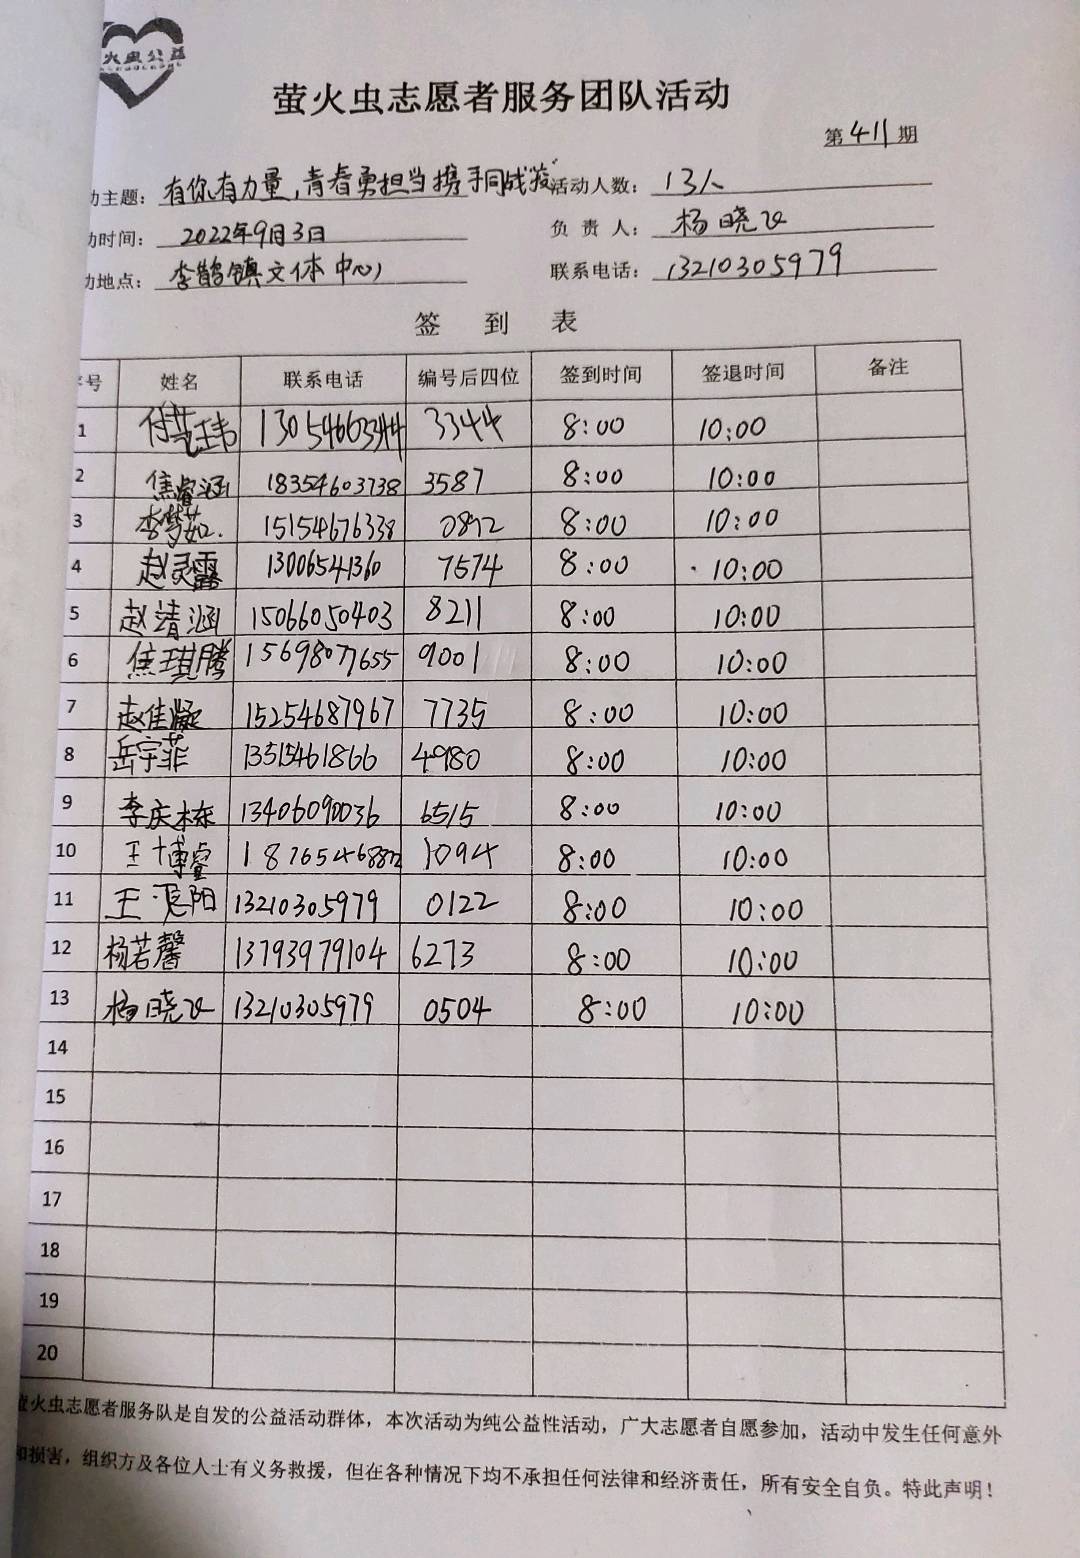 火虫公益
萤火虫志愿者服务团队活动
第411期
动主题：有你有力量，青春勇担当携手同战疫 活动人数：13人
动时间：2022年9月3日 负责人：杨晓
动地点：李鹊镇文体中心 联系电话：13210305979
签到表
序号 姓名 联系电话 编号后四位 签到时间 签退时间 备注
1 付艺玮 13054663344 3344 8:00 10:00
2 焦睿涵 18354603738 3587 8:00 10:00
3 李梦茹 15154676338 0892 8:00 10:00
4 赵灵露 13006541360 7574 8:00 10:00
5 赵靖涵 15066050403 8211 8:00 10:00
6 焦琪腾 15698077655 9001 8:00 10:00
7 赵佳凝 15254687967 7735 8:00 10:00
8 岳宇菲 13515461866 4980 8:00 10:00
9 李庆栋 13406090036 6515 8:00 10:00
10 王博睿 1094 8:00 10:00
11 王 阳 13210305979 0122 8:00 10:00
12 杨若馨 13793979104 6273 8:00 10:00
13 杨晓 13210305979 0504 8:00 10:00
14
15
16
17
18
19
20
萤火虫志愿者服务队是自发的公益活动群体，本次活动为纯公益性活动，广大志愿者自愿参加，活动中发生任何意外
和损害，组织方及各位人士有义务救援，但在各种情况下均不承担任何法律和经济责任，所有安全自负。特此声明！